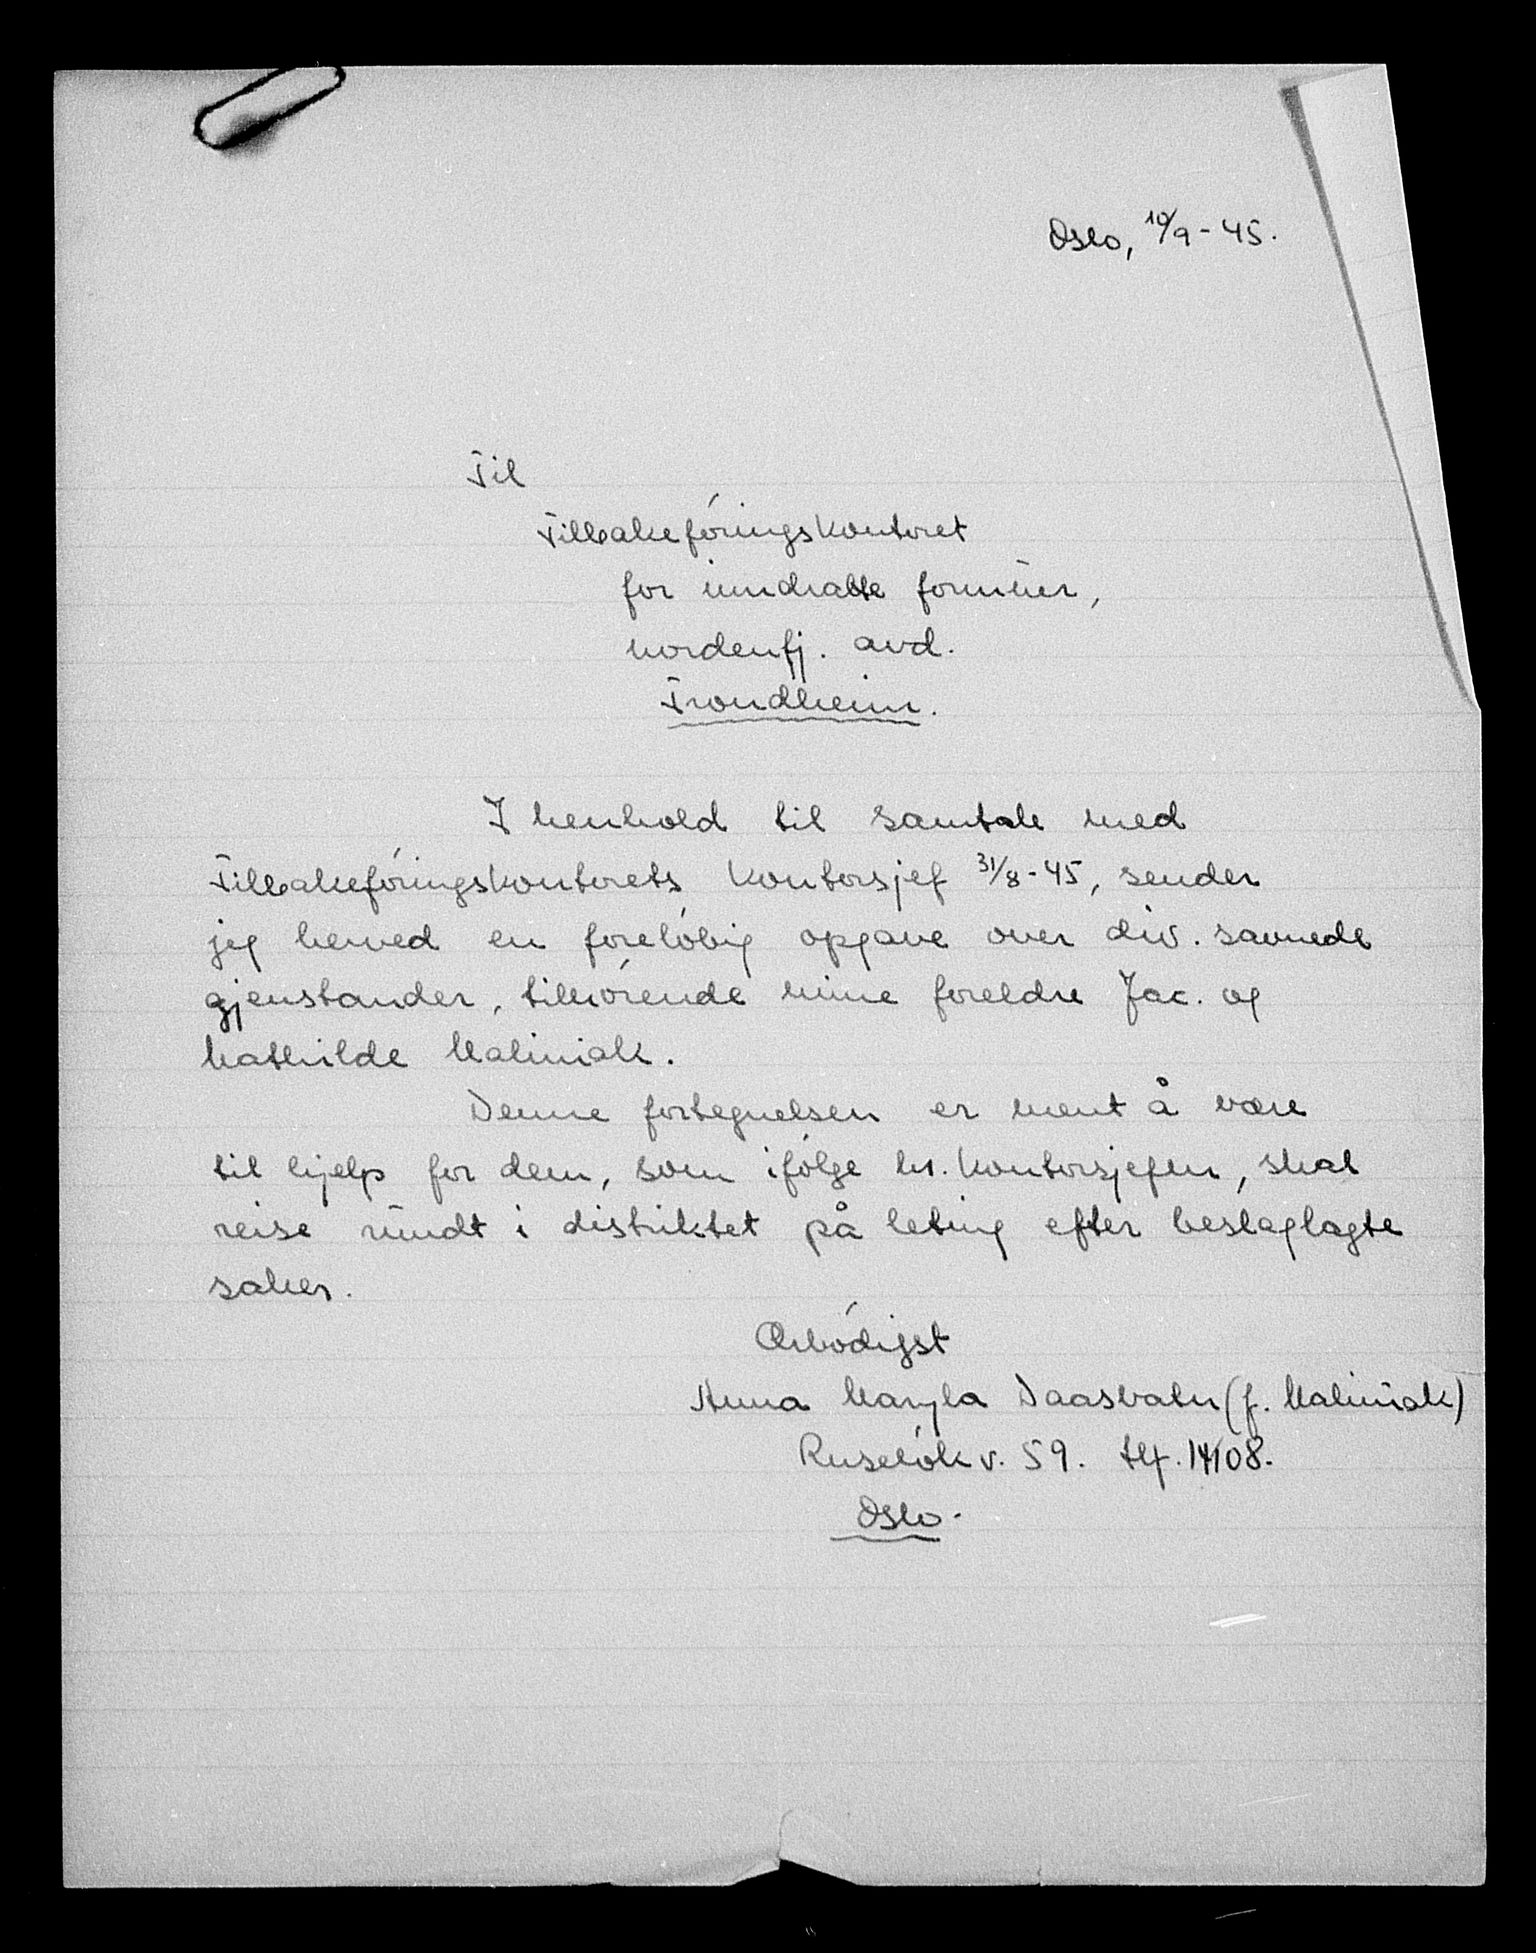 Oslo, 10/9 - 45.
Til
Tilbakeføringskontoret
for inndratte formuer,
nordenfj. avd.
Trondheim.
I henhold til samtale med
Tilbakeføringskontorets kontorsjef 31/8 - 45, sender
jeg herved en foreløbig opgave over div. savnede
gjenstander, tilhørende mine foreldre Jac. og
Mathilde Maliniak.
Denne fortegnelsen er ment å være
til hjelp for dem, som ifølge hr. kontorsjefen, skal
reise rundt i distriktet på leting efter beslaglagte
saker.
Ærbødigst
Anna Maryla Daasvatn (f. Maliniak)
Ruseløkv. 59. tlf. 14108.
Oslo.